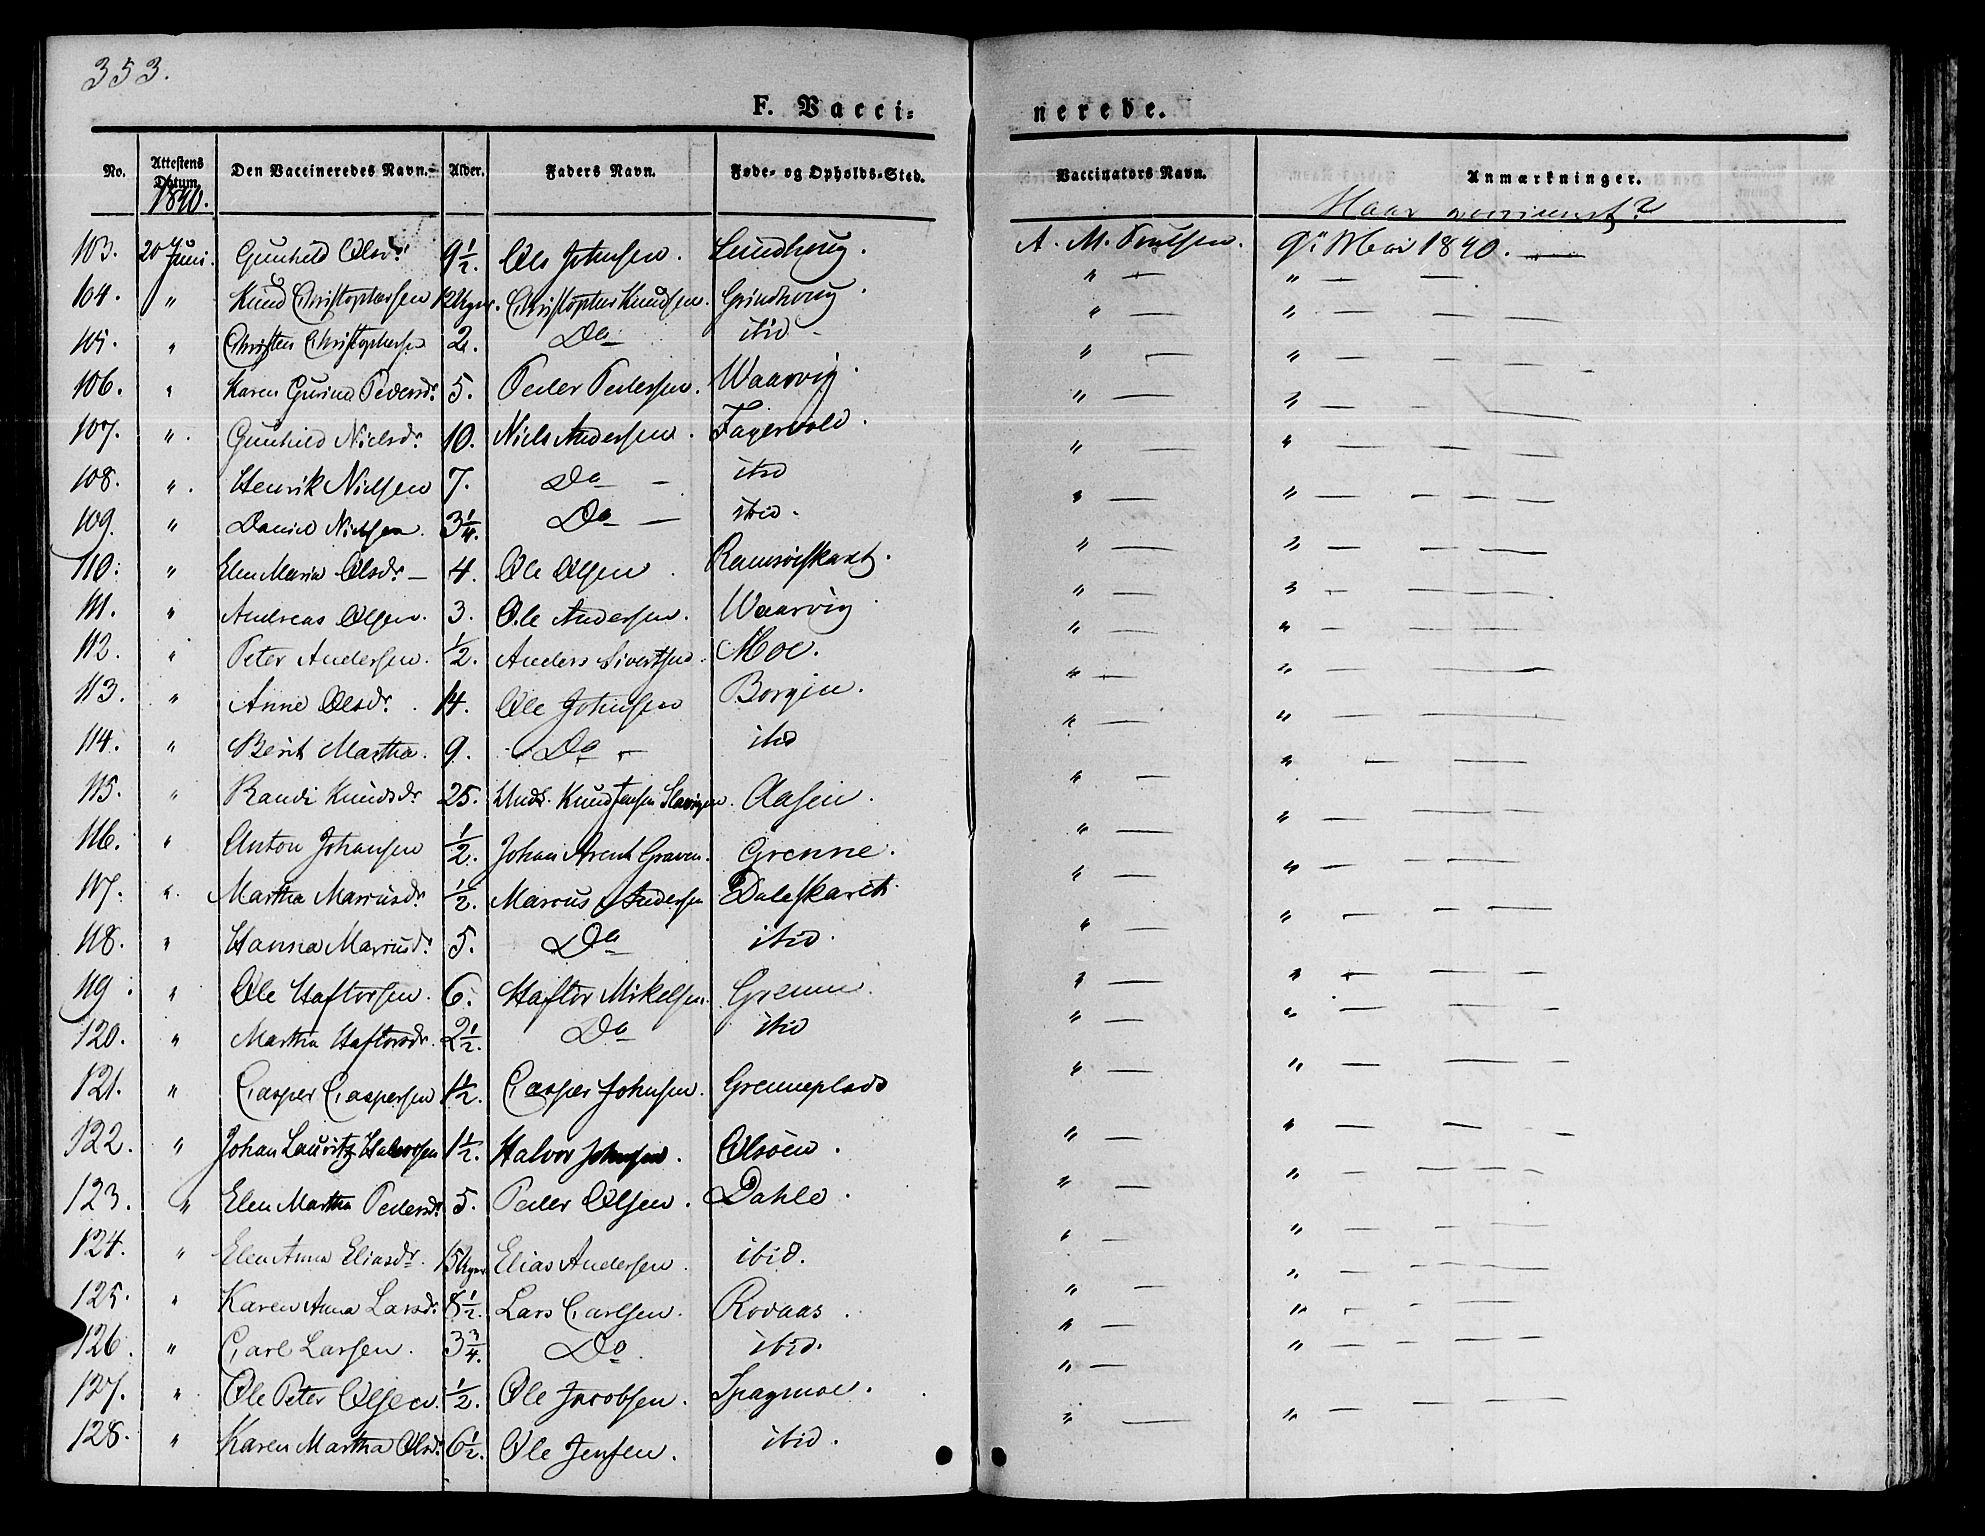 353.
F. Vacci= nerede.
No. Attestens Datum. Den Vaccineredes Navn. Alder. Faders Navn. Føde- og Opholds-Sted. Vaccinators Navn. Anmærkninger.
1840. Naar vaccineret?
103. 20 Juni. Gunhild Olsdr. 9½. Ole Johnsen. A. M. 9de Mai 1840. —
104. " Knud Christophersen 12 Uger. Christopher Knudsen. Grindhoug. " — " — — —
105. " Christen Christophersen 2. Do ibid " — " — — —
106. " Karen Gurine Pedersdr. 5. Peder Pedersen. Waarvig. " — " — — —
107. " Gunhild Nielsdr. 10. Niels Andersen. Fagervold. " — " — — —
108. " Henrik Nielsen 7. Do — ibid " — " — — —
109. " Daniel Nielsen. 3¼. Do — ibid. " — " — — —
110. " Elen Maria Olsdr. — 4. Ole Olsen. " — " — — —
111. " Andreas Olsen. 3. Ole Andersen. Waarvig " — " — — —
112. " Peter Andersen. ½. Anders Sivertsen. Moe. " — " — — —
113. " Anne Olsdr. 14. Ole Johnsen Borgen. " — " — — —
114. " Berit Martha. 9. Do — ibid " — " — — —
115. " Randi Knudsdr. 25. Knud Jensen Aasen. " — " — — —
116. " Anton Johansen ½. Johan Arent Graven. Grenne. " — " — — —
117. " Martha Marcusdr. ½. Marcus Andersen Daleskaret. " — " — — —
118. " Hanna Marcusdr. 5. Do ibid. " — " — — —
119. " Ole Haftorsen. 6. Haftor Mikelsen. Grenne. " — " — — —
120. " Martha Haftorsdr. 2½. Do ibid " — " — — —
121. " Casper Caspersen 1½. Casper Johnsen. Grenneplads " — " — — —
122. " Johan Lauritz Halvorsen 1½. Halvor Johnsen. Olsøen. " — " — — —
123. " Elen Martha Pedersdr. 5. Peder Olsen. Dahle. " — " — — —
124. " Elen Anna Eliasdr. 15 Uger. Elias Andersen. ibid. " — " — — —
125. " Karen Anna Larsdr. 8½. Lars Carlsen. Rovaas. " — " — — —
126. " Carl Larsen. 3¾. Do. ibid. " — " — — —
127. " Ole Peter Olsen. ½. Ole Jacobsen. Spagmoe. " — " — — —
128. " Karen Martha Olsdr. 6½. Ole Jensen. ibid. " — " — — —